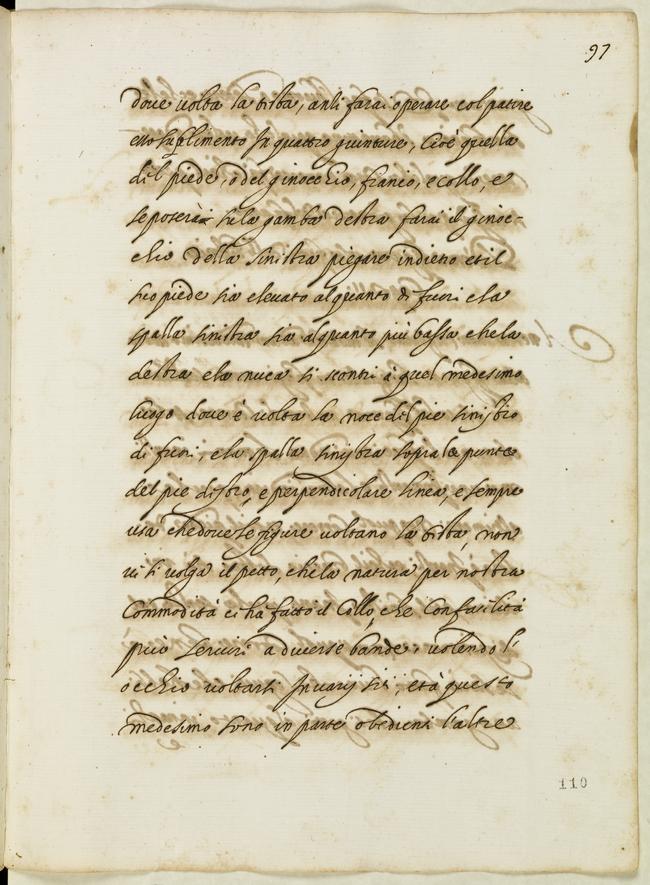 97
doue uolta la testa, anzi farai operare col patire
esso suplimento In quattro giunture, Cioè quella
del piede, o del ginocchio, fianco, e collo, e
se poserà su la gamba destra farai il ginoc-
chio della sinistra piegare indietro et il
suo piede sia eleuato alquanto di fuori e la
spalla sinistra sia alquanto più bassa che la
destra e la nuca si scontri à quel medesimo
luogo doue è uolta la noce del pie sinistro
di fuori, e la spalla sinistra sopra la punta
del pie destro, e perpendicolare linea, e sempre
usa che doue le figure uoltano la testa, non
ui si uolga il petto, che la natura per nostra
Commodità ci ha fatto il Collo, che Con facilità
può seruire a diuerse bande, uolendo l'
occhio uoltarsi In uarij siti, et à questo
medesimo sono in parte obedienti l'altre
110